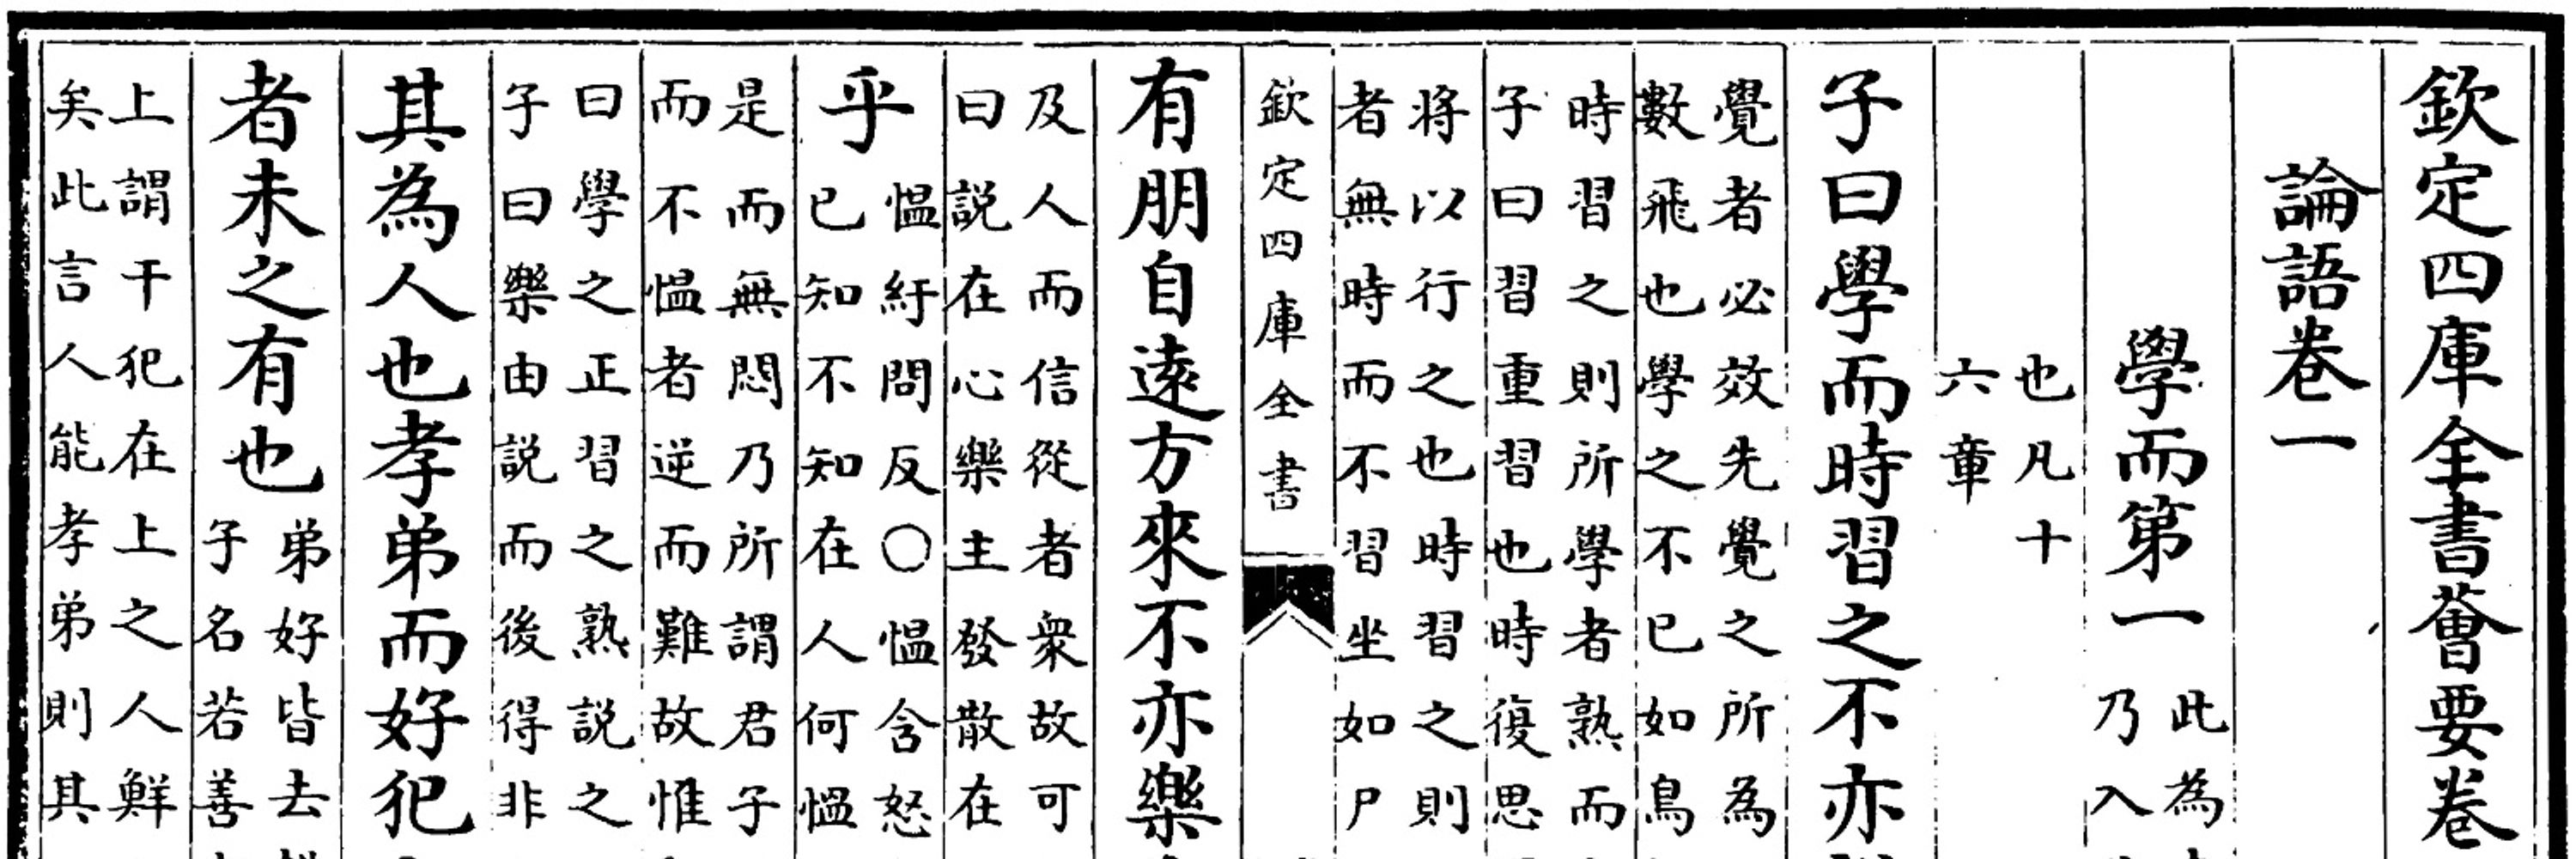 欽定四庫全書薈要卷
論語卷一
學而第一
此為
乃入
也凡十
六章
子曰學而時習之不亦
覺者必效先覺之所為
數飛也學之不已如鳥
時習之則所學者熟而
子曰習重習也時復思
將以行之也時習之則
者無時而不習坐如尸
欽定四庫全書
有朋自遠方來不亦樂
及人而信從者衆故可
曰説在心樂主發散在
乎
愠紆問反○愠含怒
已知不知在人何愠
是而無悶乃所謂君子
而不愠者逆而難故惟
曰學之正習之熟説之
子曰樂由説而後得非
其為人也孝弟而好犯
者未之有也
弟好皆去
子名若善
上謂干犯在上之人鮮
矣此言人能孝弟則其